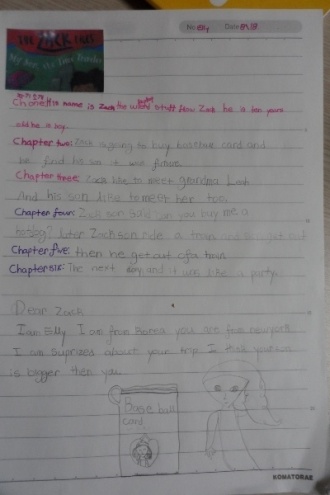 THE ZACK FILES
No. elly Date
Chone: his name is Zack he want stuff from Zack he is ten years
old he is a boy.
Chapter two: Zack is going to buy baseball card and
he find his son it was future
Chapter three: Zack like to meet grandma Leah
And his son like to meet her too.
Chapter four: Zack son said can you buy me a
hotdog? later Zack son ride a train and
Chapter five: then he get out of a train
Chapter six: The next day and it was like a party.
Dear Zack
I am Elly I am from Korea you are from newyork
I am suprized about your trip I think your son
is bigger then you
Base ball
card
KOMATORAE